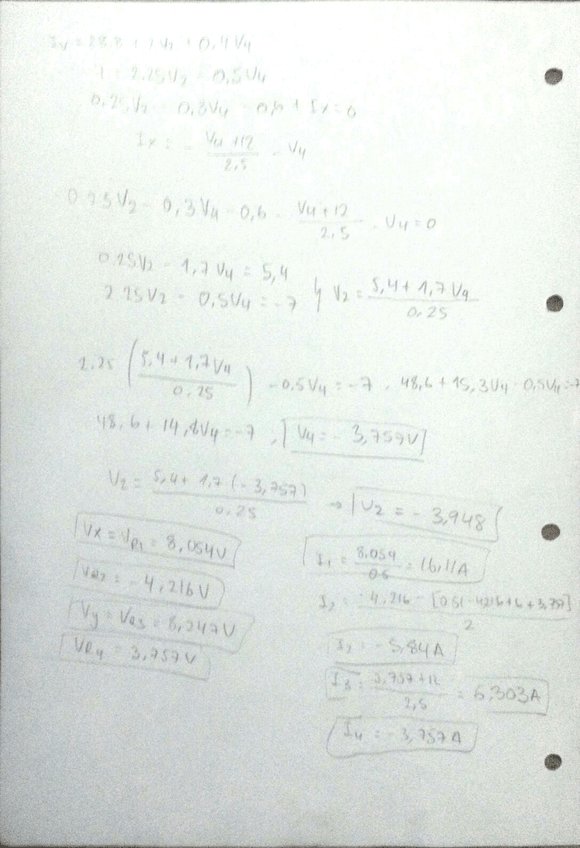 Iy = 28.8 + 2V2 + 0,4V4
-7 = 2.25V2 - 0,5V4
0,25V2 - 0,3V4 - 0,6 + Ix = 0
Ix = - V4 + 12 / 2,5 - V4
0.25V2 - 0,3V4 - 0,6 - V4 + 12 / 2,5 - V4 = 0
0.25V2 - 1,7V4 = 5,4
2.25V2 - 0,5V4 = -7
V2 = 5,4 + 1,7V4 / 0,25
2.25 ( 5,4 + 1,7V4 / 0,25 ) - 0,5V4 = -7 . 48,6 + 15,3V4 - 0,5V4 = -7
48,6 + 14,8V4 = -7 , V4 = - 3,757V
V2 = 5,4 + 1,7 (-3,757) / 0,25 → V2 = - 3,948
Vx = VR1 = 8,054V
VR2 = -4,216V
Vy = VR3 = 8,247V
VR4 = 3,757V
I1 = 8.054 / 0.5 = 16,11A
I2 = -5,84A
I3 = 3,757 + 12 / 2,5 = 6,303A
I4 = -3,757A